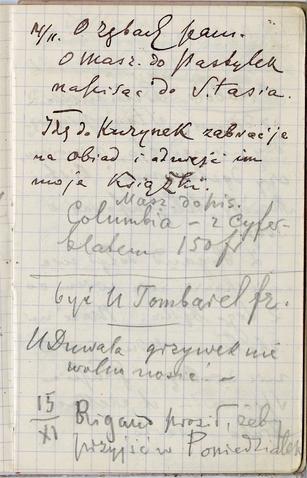 14/11. O zębach pam.
O masz. do pastylek
napisać do Stasia.
Idę do Kuzynek zabrać je
na obiad i odnieść im
moje książki.
Masz. do pis.
Columbia – z cyfer-
blatem 150 fr
być u Tombarel fr.
U Duvala grzywek nie
wolno nosić! –
15/XI Rigaud prosił, żeby
przyjść w Poniedziałek